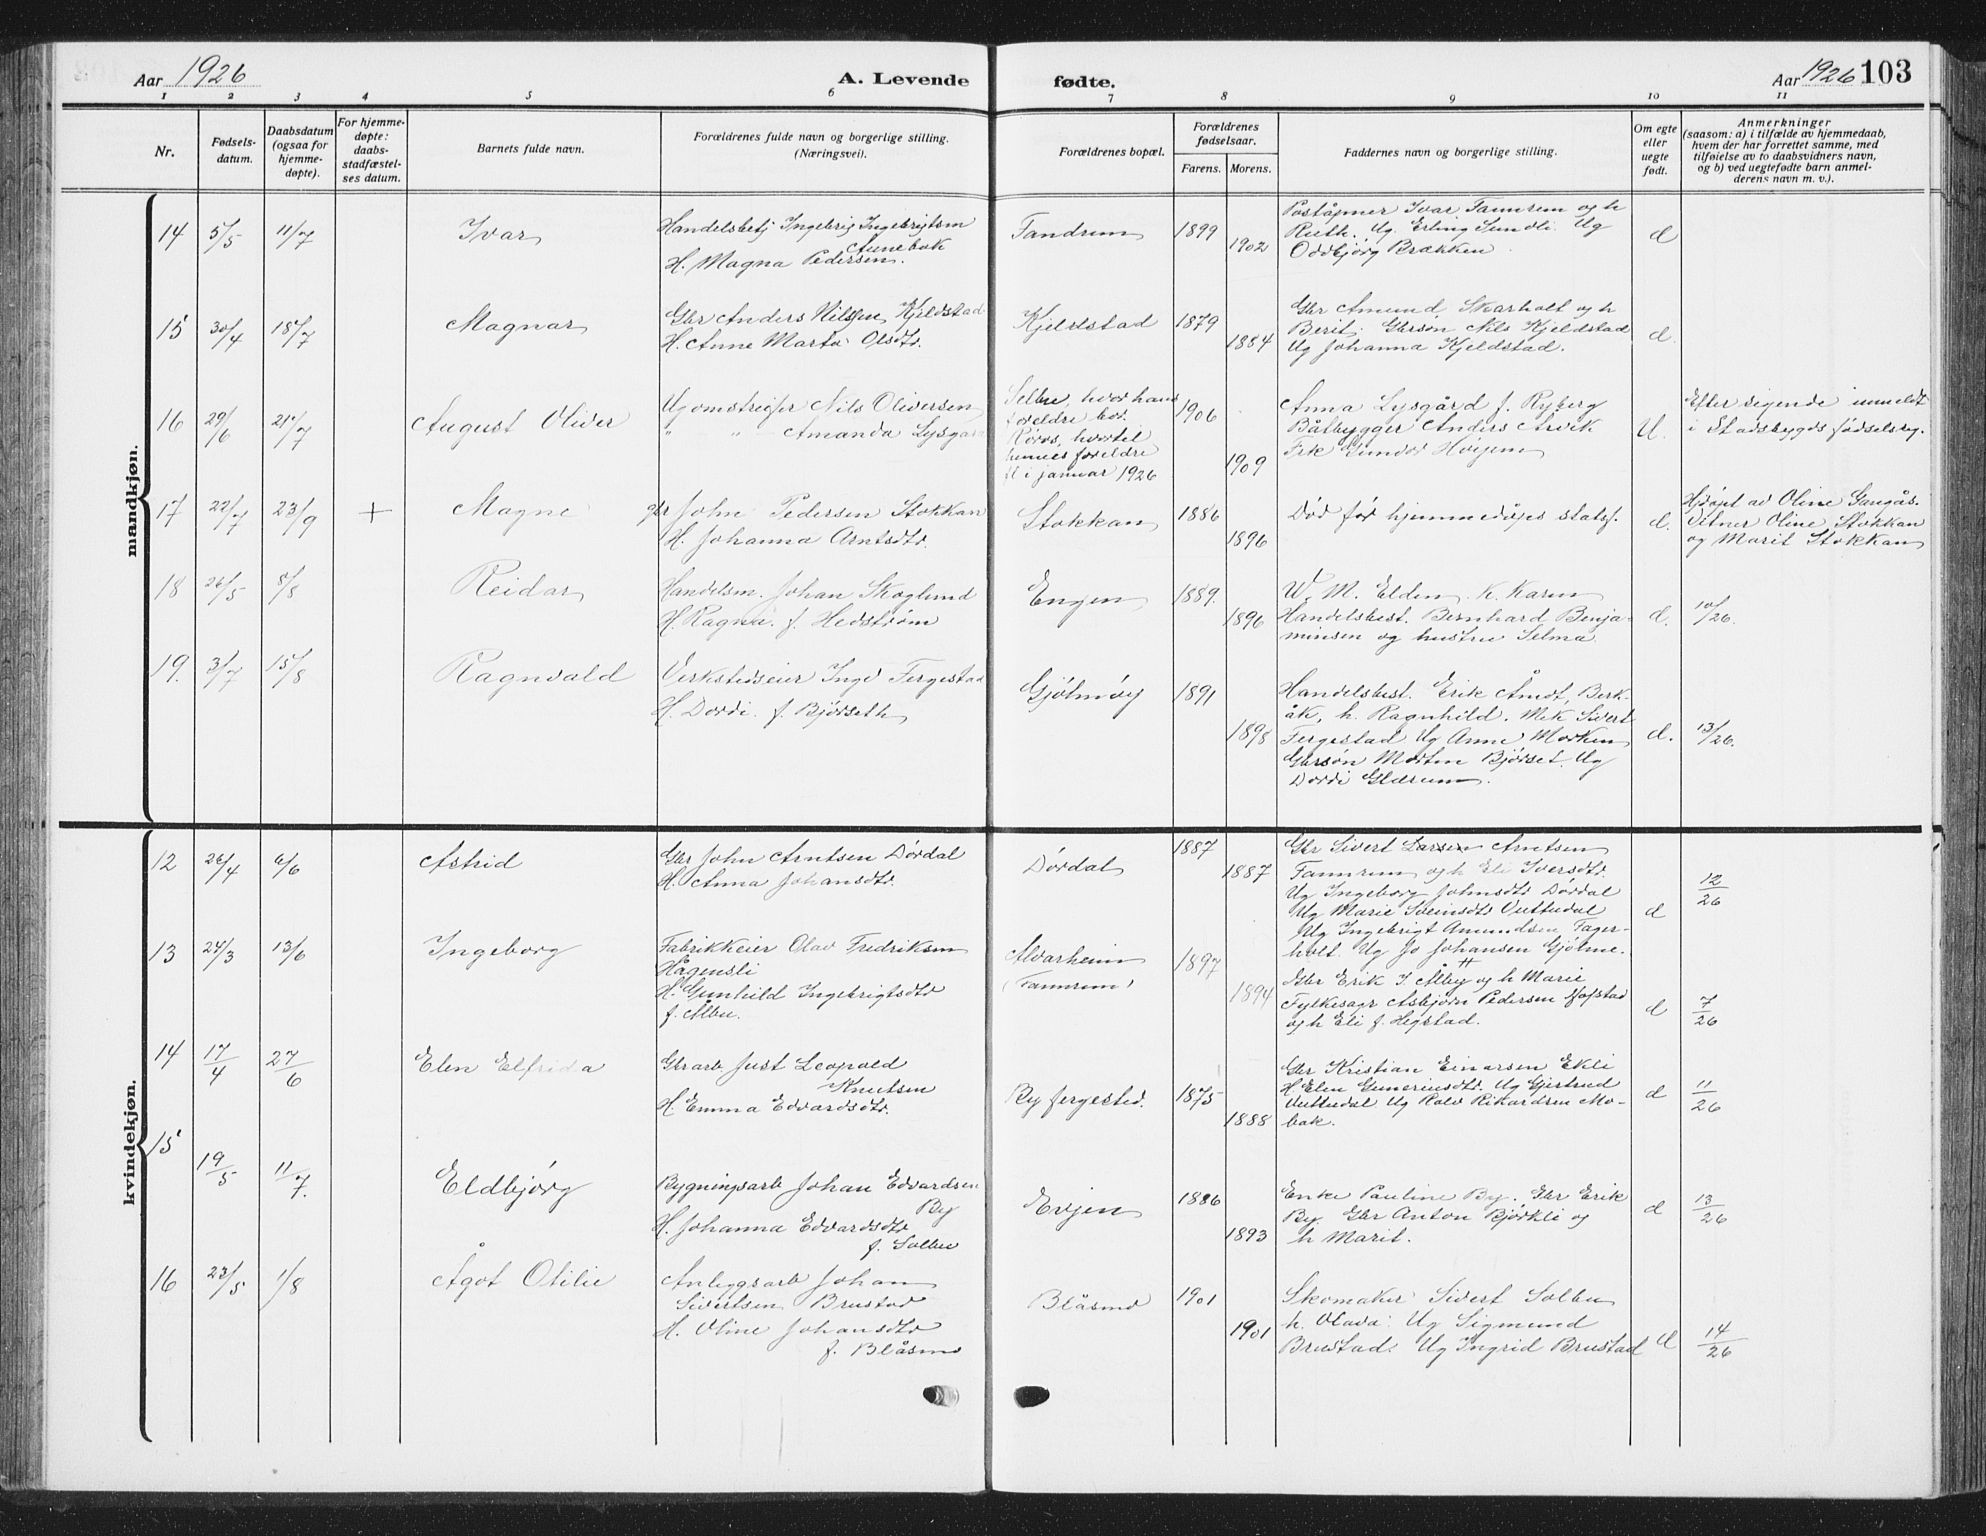 Aar 1926
A. Levende fødte.
Aar 1926 103
1 2 3 4 5 6 7 8 9 10 11
Nr.
Fødsels-
datum.
Daabsdatum
(ogsaa for
hjemme-
døpte).
For hjemme-
døpte:
daabs-
stadfæstel-
ses datum.
Barnets fulde navn.
Forældrenes fulde navn og borgerlige stilling.
(Næringsvei).
Forældrenes bopæl.
Forældrenes
fødselsaar.
Farens. Morens.
Faddernes navn og borgerlige stilling.
Om egte
eller
uegte
født.
Anmerkninger
(saasom: a) i tilfælde av hjemmedaab,
hvem der har forrettet samme, med
tilføielse av to daabsvidners navn,
og b) ved uegtefødte barn anmel-
derens navn m. v.).
mandkjøn.
14 5/5 11/7 Ivar
Handelsbetj Ingebrig Ingebrigtsen
Aunebak
H. Magna Pedersen.
Fandrem 1899 1902
Poståpner Ivar Fannrem og h
Ruth. Ug. Erling Sundli. Ug
Oddbjörg Brækken.
d
15 30/4 18/7 Magnar
Gbr Anders Nilssen Kjeldstad
H. Anne Marta Olsdtr.
Kjeldstad 1879 1884
Gbr Amund Skarholt og h
Berit. Gbrsön Nils Kjeldstad
Ug Johanna Kjeldstad.
d.
16 29/6 21/7 August Oliver
Ug omstreifer Nils Oliversen
" " Amanda Lysgård
Selbu, hvor hans
foreldre bor.
Röros, hvortil
hennes foreldre
fl i januar 1926
1906 1909
Anna Lysgård f. Ryberg
Båtbygger Anders Arvik
Frk Gunvor Höijem
U.
Efter sigende innmeldt
i Stadsbygds fødselsreg.
17 22/7 23/9 + Magne
gbr John Pedersen Stokkan
H. Johanna Arntsdtr.
Stokkan 1886 1896
Död för hjemmedåpes statsf.
d.
Hjdöpt av Oline Gangås.
Vitner Oline Stokkan
og Marit Stokkan
18 26/5 8/8 Reidar
Handelsm. Johan Skoglund
H. Ragna. f. Hedström
Engen 1889. 1896
W. M. Elden. K. Karen
Handelsbest. Bernhard Benja-
minsen og hustru Selma
d. 10/26.
19. 3/7 15/8 Ragnvald
Verkstedseier Ingv Fergestad
H. Dordi. f. Bjørseth
Gjölmöy 1891 1898
Handelsbest. Erik Åmot, Berk-
åk, h. Ragnhild. Mek Sivert
Fergestad Ug Anne Morken
Gbrsön Morten Bjørset. Ug
Dordi Glærum.
d. 13/26.
kvindekjøn.
12 26/4 6/6 Astrid
Gbr John Arntsen Dördal
H. Anna Johansdtr.
Dördal 1887 1887
Gbr Sivert Larsen Arntsen
Fannrem og h Eli Iversdtr.
Ug Ingeborg Johnsdtr Dördal
Ug Marie Sveinsdtr Vuttudal
Ug Ingebrigt Amundsen Fager-
holt. Ug Jo Johansen Gjölme.
d 12/26
13 24/3 13/6 Ingeborg
Fabrikkeier Olav Fredriksen
Hågensli
H. Gunhild Ingebrigtsdtr
f. Ålbu.
Alvarheim
(Fannrem)
1897 1894
Gbr Erik I. Ålby og h Marie
Fylkesagr Asbjörn Pedersen Hofstad
og h Eli f. Hegstad.
d 7/26
14 17/4 27/6 Elen Elfrida
Gbrarb Just Leopold
Knutsen
H. Emma Edvardsdtr.
By fergested. 1875 1888
Gbr Kristian Einarsen Ekli
H Elen Guneriusdtr. Ug Gjertrud
Vuttudal Ug Rolv Rikardsen Mo-
bak.
d 11/26
15 19/5 11/7. Eldbjörg
Bygningsarb Johan Edvardsen
By
H. Johanna Edvardsdtr
f. Solbu
Evjen 1886 1893
Enke Pauline By. Gbr Erik
By. Gbr Anton Björkli og
h Marit.
d 13/26
16 23/5 1/8 Ågot Otilie
Anleggsarb Johan
Sivertsen Brustad
H. Oline Johansdtr
f. Blåsmo
Blåsmo 1901 1901
Skomaker Sivert Solbu
h. Olava. Ug Sigmund
Brustad. Ug Ingrid Brustad
d 14/26